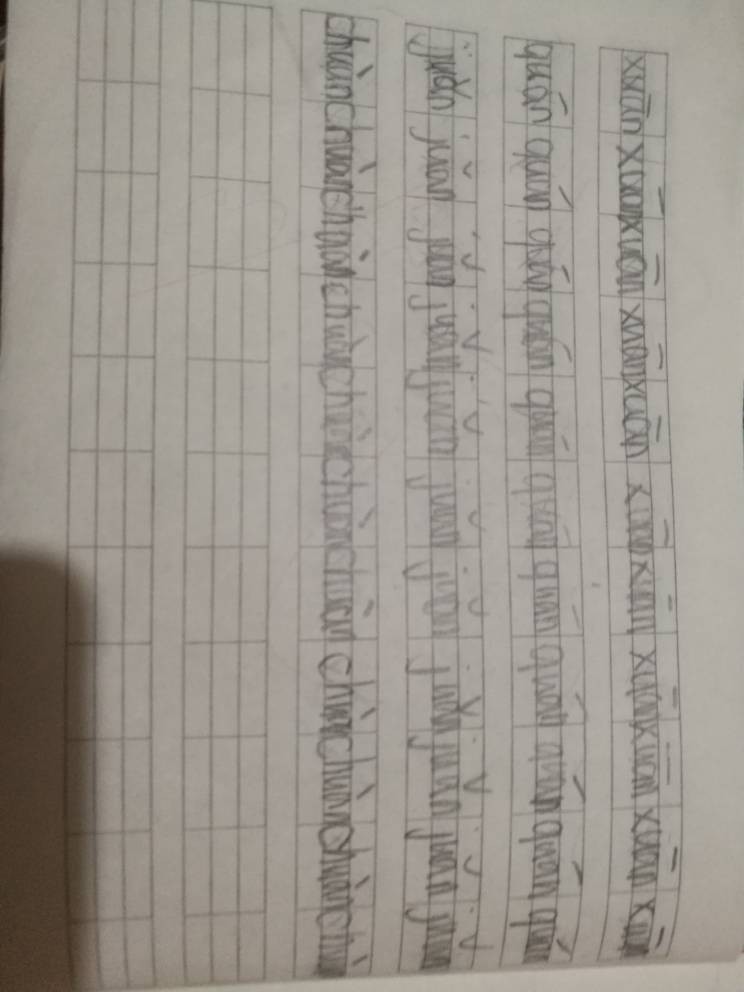 xuān xuān xuān xuān xuān xuān xuān xuān xuān xuān xuān
quán quán quán quán quán quán quán quán quán quán quán
juǎn juǎn juǎn juǎn juǎn juǎn juǎn juǎn juǎn juǎn juǎn
chuàn chuàn chuàn chuàn chuàn chuàn chuàn chuàn chuàn chuàn